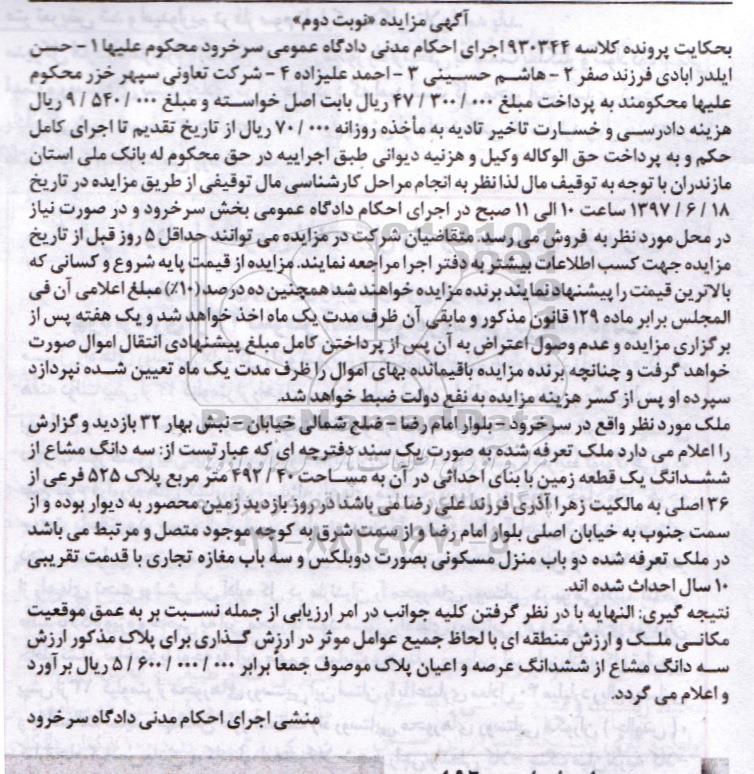 آگهی مزایده «نوبت دوم»
بحکایت پرونده کلاسه ۹۳۰۳۴۴ اجرای احکام مدنی دادگاه عمومی سرخرود محکوم علیها ۱- حسن
ایلدر ابادی فرزند صفر ۲- هاشم حسینی ۳- احمد علیزاده ۴- شرکت تعاونی سپهر خزر محکوم
علیها محکومند به پرداخت مبلغ ۴۷/۳۰۰/۰۰۰ ریال بابت اصل خواسته و مبلغ ۹/۵۴۰/۰۰۰ ریال
هزینه دادرسی و خسارت تاخیر تادیه به مأخذه روزانه ۷۰/۰۰۰ ریال از تاریخ تقدیم تا اجرای کامل
حکم و به پرداخت حق الوکاله وکیل و هزنیه دیوانی طبق اجراییه در حق محکوم له بانک ملی استان
مازندران با توجه به توقیف مال لذا نظر به انجام مراحل کارشناسی مال توقیفی از طریق مزایده در تاریخ
۱۳۹۷/۶/۱۸ ساعت ۱۰ الی ۱۱ صبح در اجرای احکام دادگاه عمومی بخش سرخرود و در صورت نیاز
در محل مورد نظر به فروش می رسد. متقاضیان شرکت در مزایده می توانند حداقل ۵ روز قبل از تاریخ
مزایده جهت کسب اطلاعات بیشتر به دفتر اجرا مراجعه نمایند. مزایده از قیمت پایه شروع و کسانی که
بالاترین قیمت را پیشنهاد نمایند برنده مزایده خواهند شد همچنین ده درصد (۱۰٪) مبلغ اعلامی آن فی
المجلس برابر ماده ۱۲۹ قانون مذکور و مابقی آن ظرف مدت یک ماه اخذ خواهد شد و یک هفته پس از
برگزاری مزایده و عدم وصول اعتراض به آن پس از پرداختن کامل مبلغ پیشنهادی انتقال اموال صورت
خواهد گرفت و چنانچه برنده مزایده باقیمانده بهای اموال را ظرف مدت یک ماه تعیین شده نپردازد
سپرده او پس از کسر هزینه مزایده به نفع دولت ضبط خواهد شد.
ملک مورد نظر واقع در سرخرود – بلوار امام رضا – ضلع شمالی خیابان – نبش بهار ۳۲ بازدید و گزارش
را اعلام می دارد ملک تعرفه شده به صورت یک سند دفترچه ای که عبارتست از: سه دانگ مشاع از
ششدانگ یک قطعه زمین با بنای احداثی در آن به مساحت ۴۹۲/۴۰ متر مربع پلاک ۵۲۵ فرعی از
۳۶ اصلی به مالکیت زهرا آذری فرزند علی رضا می باشد در روز بازدید زمین محصور به دیوار بوده و از
سمت جنوب به خیابان اصلی بلوار امام رضا و از سمت شرق به کوچه موجود متصل و مرتبط می باشد
در ملک تعرفه شده دو باب منزل مسکونی بصورت دوبلکس و سه باب مغازه تجاری با قدمت تقریبی
۱۰ سال احداث شده اند.
نتیجه گیری: النهایه با در نظر گرفتن کلیه جوانب در امر ارزیابی از جمله نسبت بر به عمق موقعیت
مکانی ملک و ارزش منطقه ای با لحاظ جمیع عوامل موثر در ارزش گذاری برای پلاک مذکور ارزش
سه دانگ مشاع از ششدانگ عرصه و اعیان پلاک موصوف جمعاً برابر ۵/۶۰۰/۰۰۰/۰۰۰ ریال بر آورد
و اعلام می گردد.
منشی اجرای احکام مدنی دادگاه سرخرود